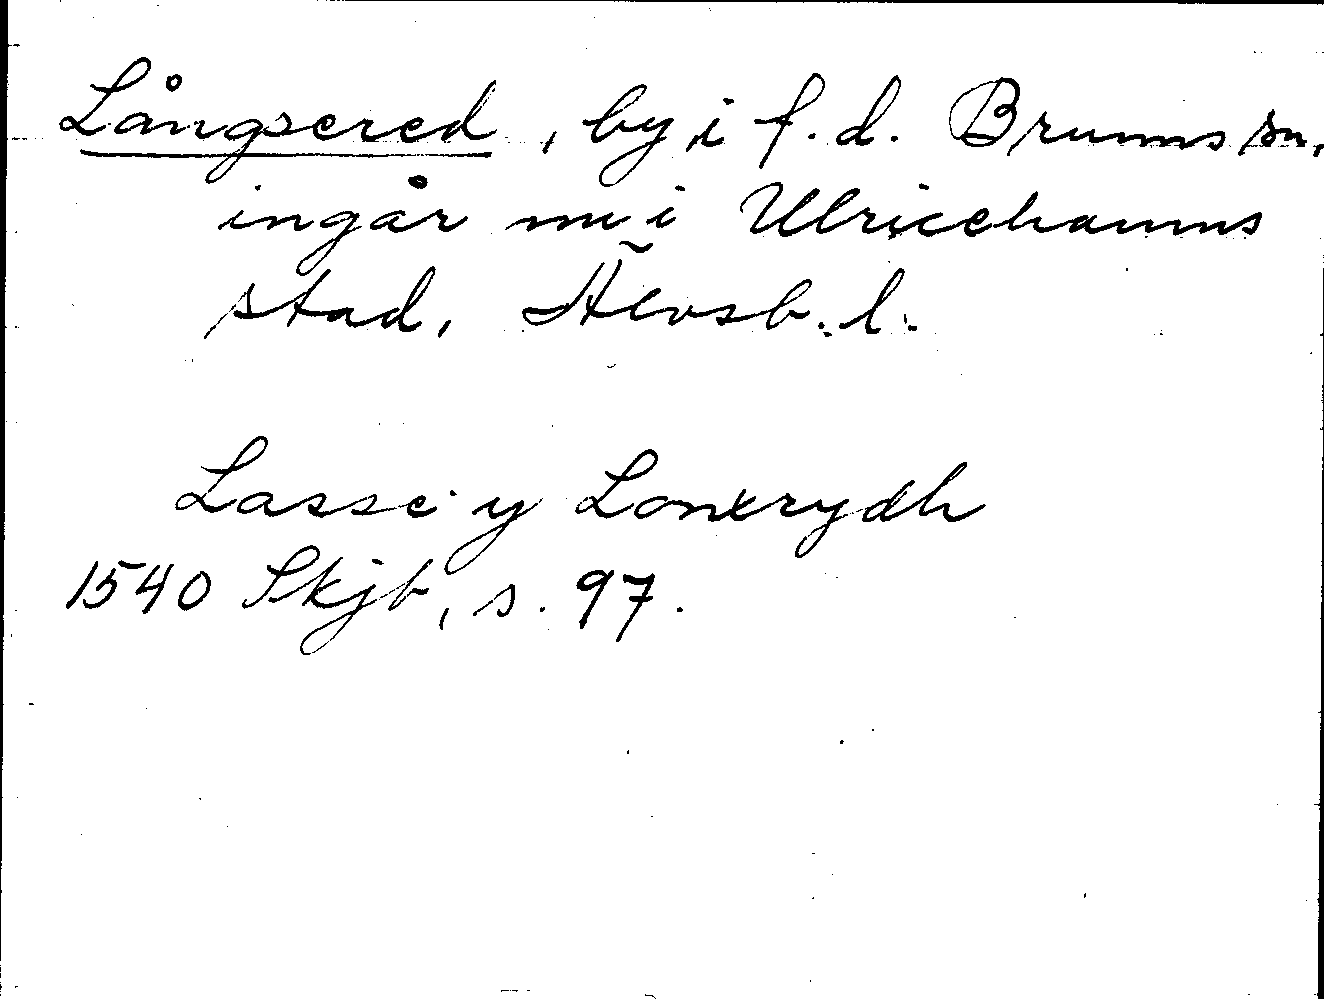 Långsered, by i f.d. Brunns sn,
ingår nu i Ulricehamns
stad, Älvsb. l.
Lasse y Lonxrydh
1540 Skjb, s. 97.